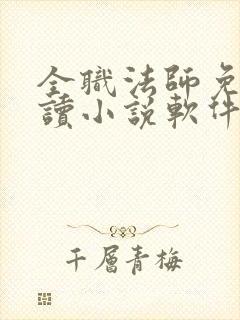 全職法師免
讀小説軟件
千層青梅